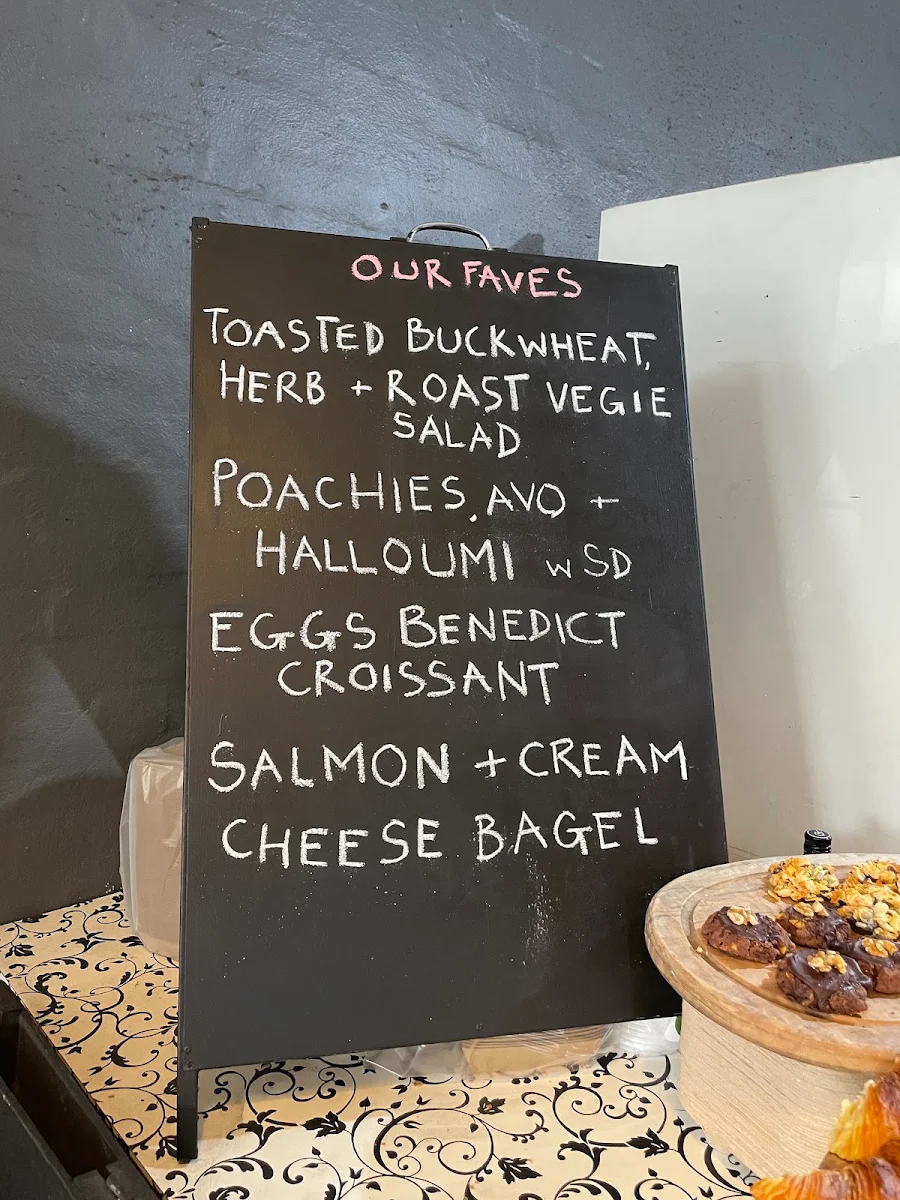 OUR FAVES
TOASTED BUCKWHEAT,
HERB + ROAST VEGIE
SALAD
POACHIES, AVO +
HALLOUMI w SD
EGGS BENEDICT
CROISSANT
SALMON + CREAM
CHEESE BAGEL